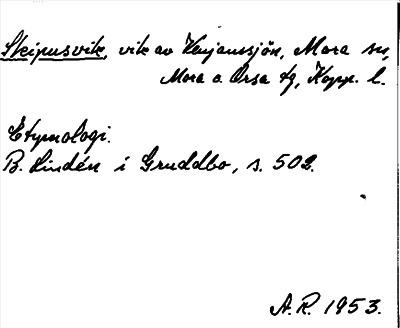 Skipusvik, vik av Venjanssjön, Mora sn,
Mora o. Orsa tg, Kopp. l.
Etymologi.
B. Lindén i Gruddbo, s. 502.
A.R. 1953.